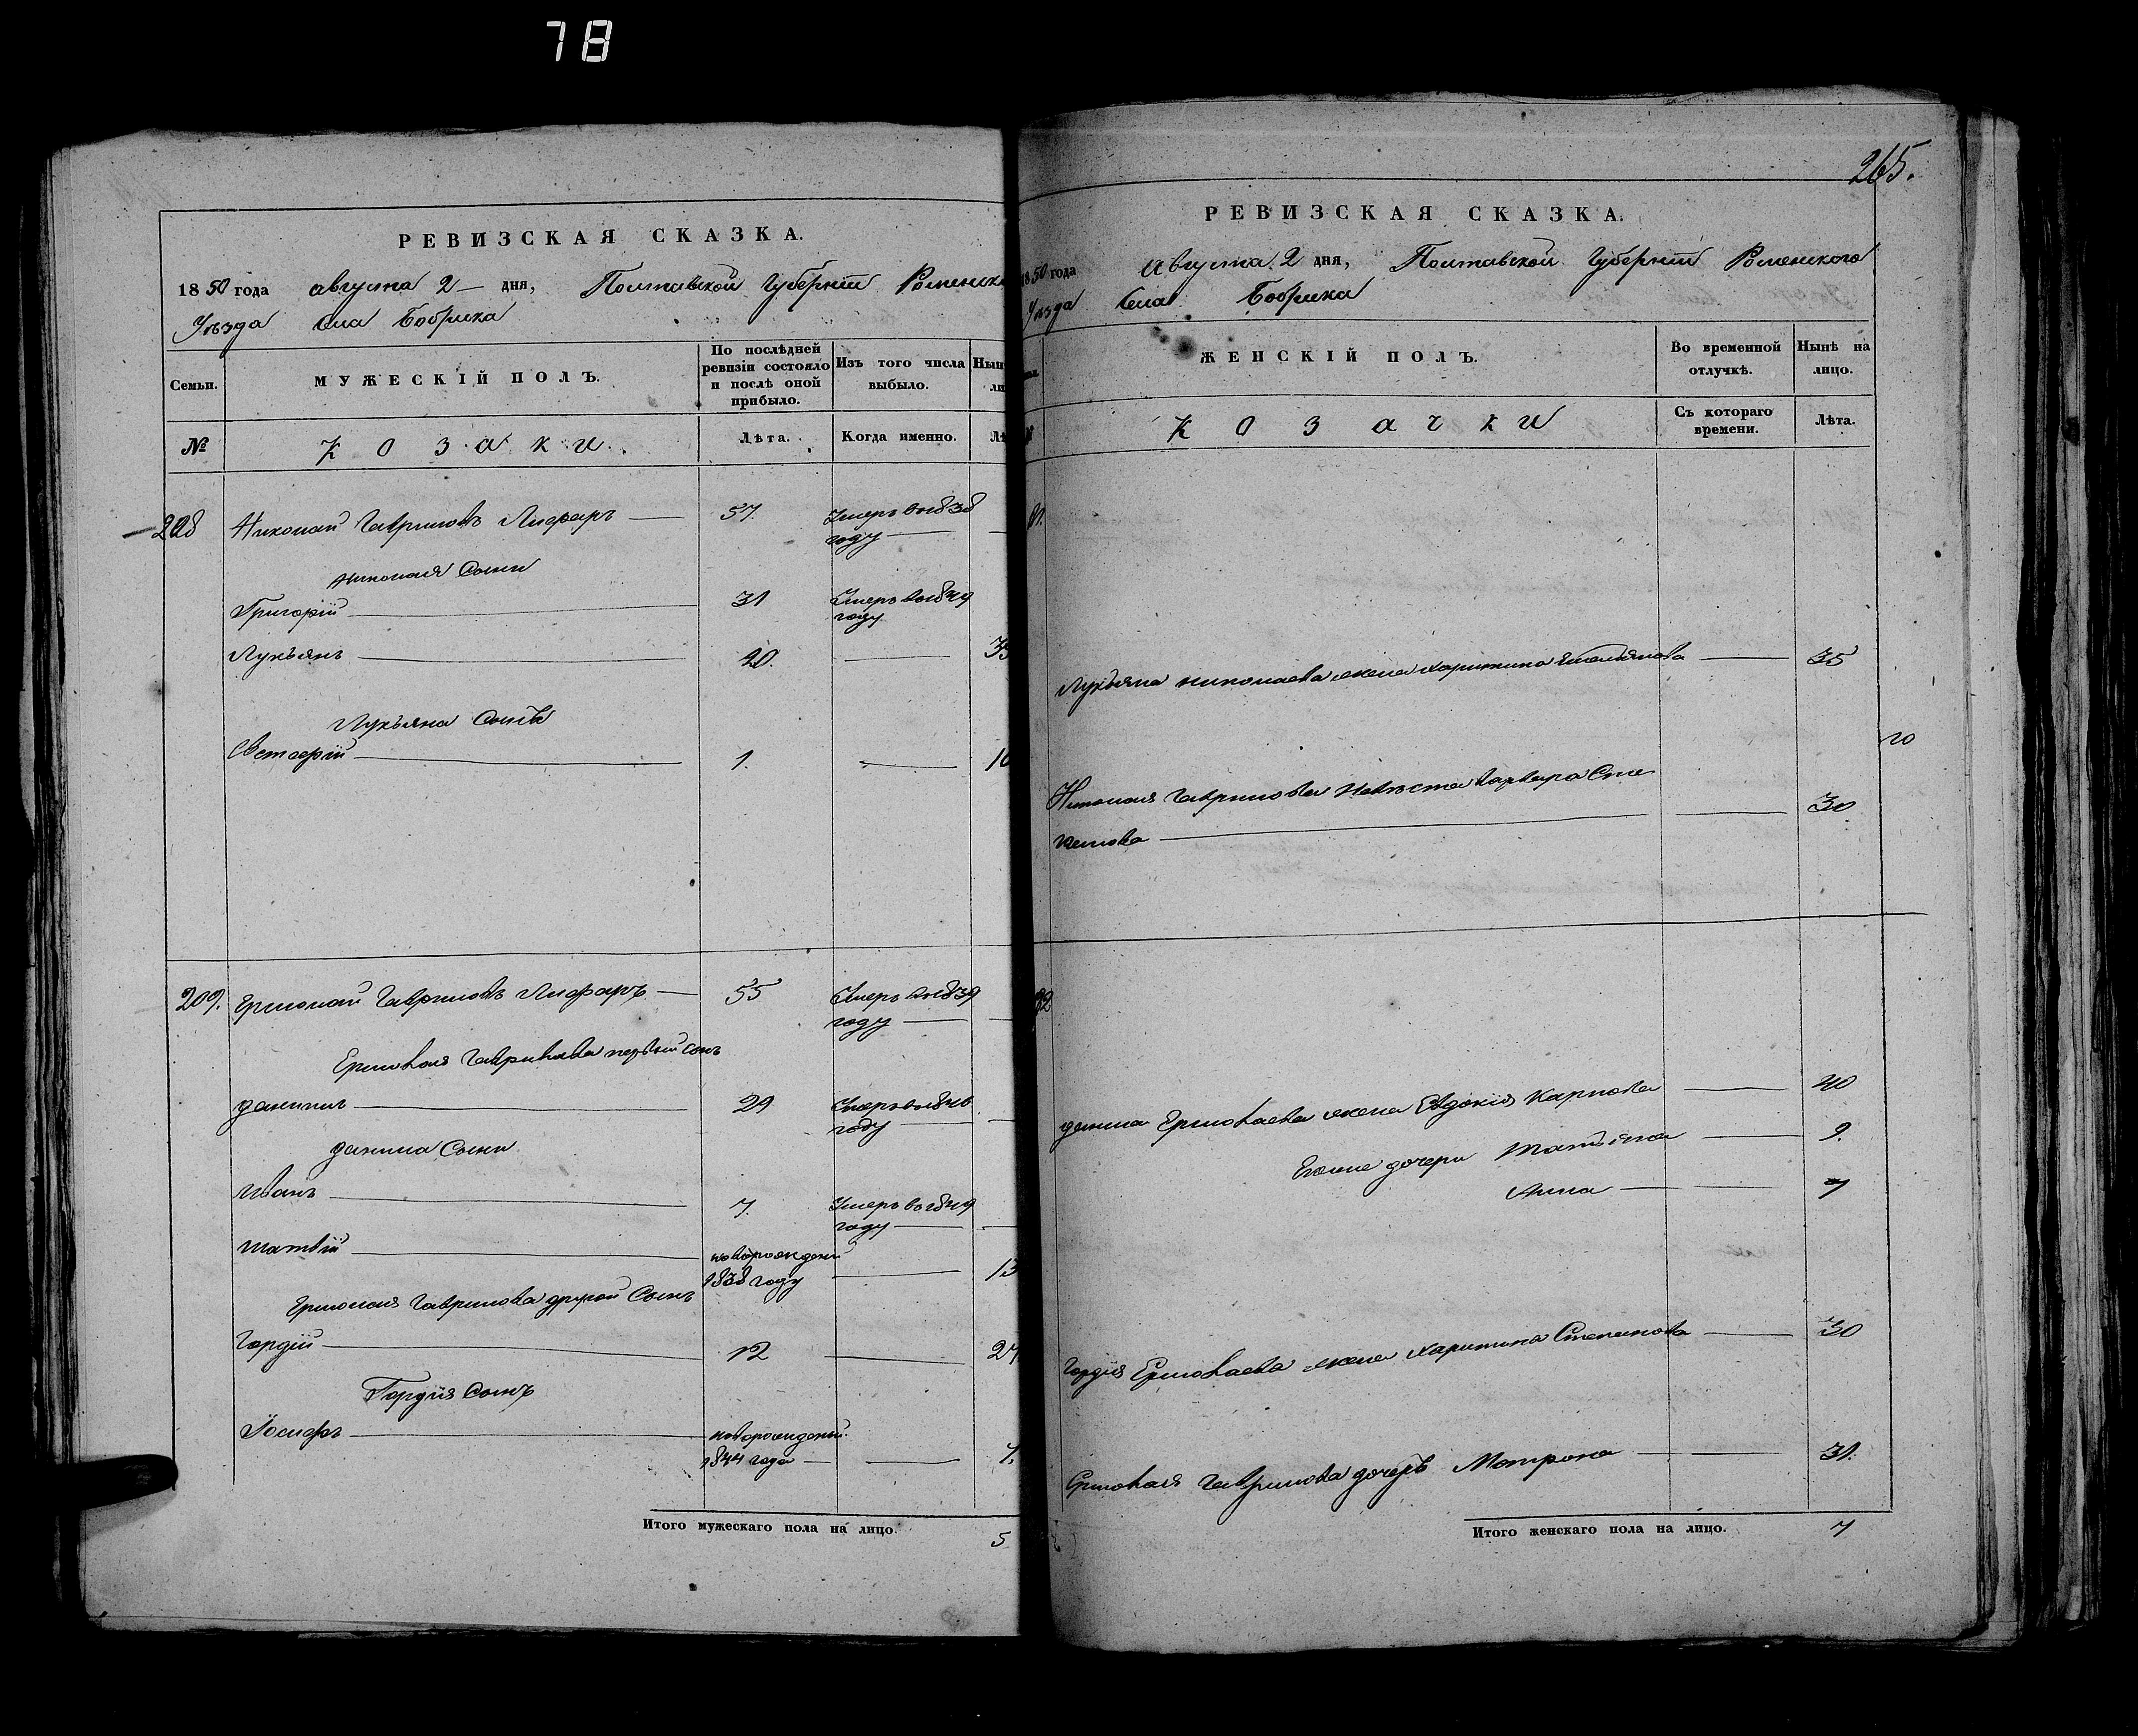 78
РЕВИЗСКАЯ СКАЗКА.
1850 года августа 2 дня, Полтавской Губернии Роменска
Уѣзда Села Бобрика
Семьи.
МУЖЕСКІЙ ПОЛЪ.
По послѣдней ревизіи состояло и послѣ оной прибыло.
Изъ того числа выбыло.
№
Козаки
Лѣта.
Когда именно.
Николай Гавриловъ Лифаръ 57. Умеръ въ 1838
году
Николая Сыни
Григорій 31 Умеръ въ 1849
году
Лукъянъ 20.
Лукъяна Сынъ
1.
209. Ермолай Гавриловъ Лифаръ 55 Умеръ въ 1839
году
Ермолая Гаврилова первый сынъ
Данило 29 Умеръ въ 1846
году
Данила Сыни
Иванъ 7. Умеръ въ 1849
году
Матвій новорожденый
1838 году 13
Ермолая Гаврилова другой Сынъ
Гордій 12
Гордія Сынъ
Іосифъ новорожденый.
1844 года 7.
Итого мужескаго пола на лицо. 5
265.
РЕВИЗСКАЯ СКАЗКА.
1850 года Августа 2 дня, Полтавской Губерніи Роменского
Уѣзда Села Бобрика
ЖЕНСКІЙ ПОЛЪ.
Во временной отлучкѣ.
Нынѣ на лицо.
Козачки
Съ котораго времени.
Лѣта.
Лукъяна Николаева жена Харитина Емельянова 35
Николая Гаврилова Невѣста Варвара Сте
панова 30
Данила Ермолаева жена Евдокія Карпова 40
дочери Татіяна 9.
Анна 7
Гордія Ермолаева жена Харитина Степанова 30
Ермолая Гаврилова дочерь Матрона 31.
Итого женскаго пола на лицо. 7